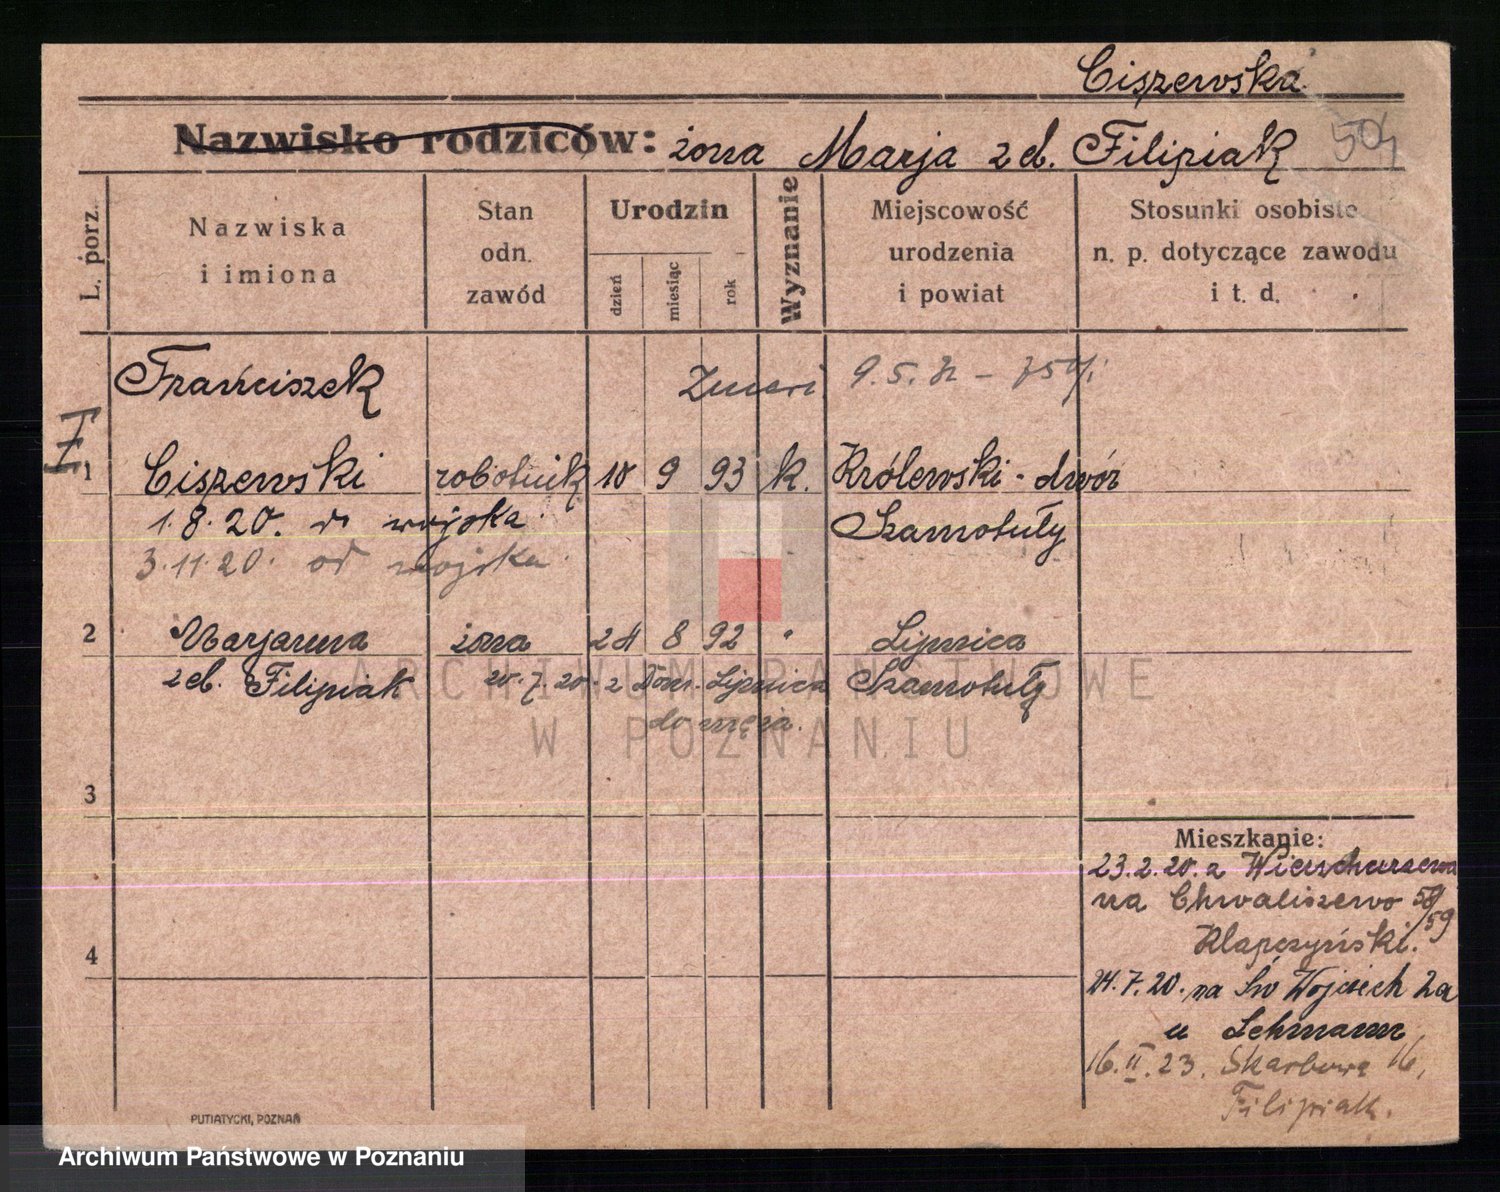 Ciszewska
Nazwisko rodziców: żona Marja zd. Filipiak 
L. porz.
Nazwiska
i imiona
Stan
odn.
zawód
Urodzin
dzień
miesiąc
rok
Wyznanie
Miejscowość
urodzenia
i powiat
Stosunki osobiste
n. p. dotyczące zawodu
i t. d.
Franciszek
9.5.
1 Ciszewski robotnik 18 9 93 k. Królewski-dwór
1.8.20. do wojska Szamotuły
3.11.20. od wojska
2 Marjanna żona 24 8 92 " Lipnica
zd. Filipiak 20.7.20. z Dom. Lipnica Szamotuły
do męża.
3
4
Mieszkanie:
23.2.20. z
na Chwaliszewo 58/59
Klapczyński.
24.7.20. na Św Wojciech 2a
u Lehmann
16.II.23. Skarbowa 16,
Filipiak.
PUTIATYCKI, POZNAŃ
ARCHIWUM PAŃSTWOWE
W POZNANIU
Archiwum Państwowe w Poznaniu